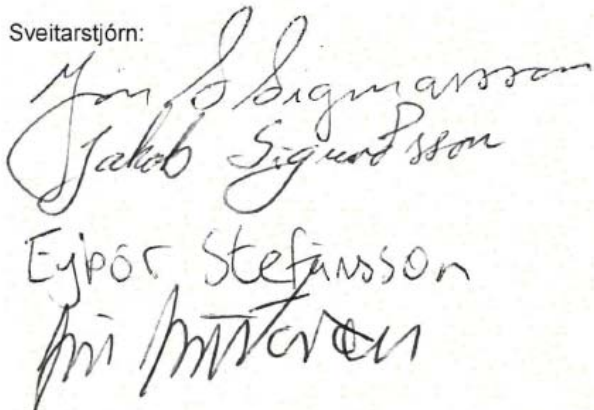 Sveitarstjórn:
Jón S Sigmarsson
Jakob Sigurðsson
Eyþór Stefánsson